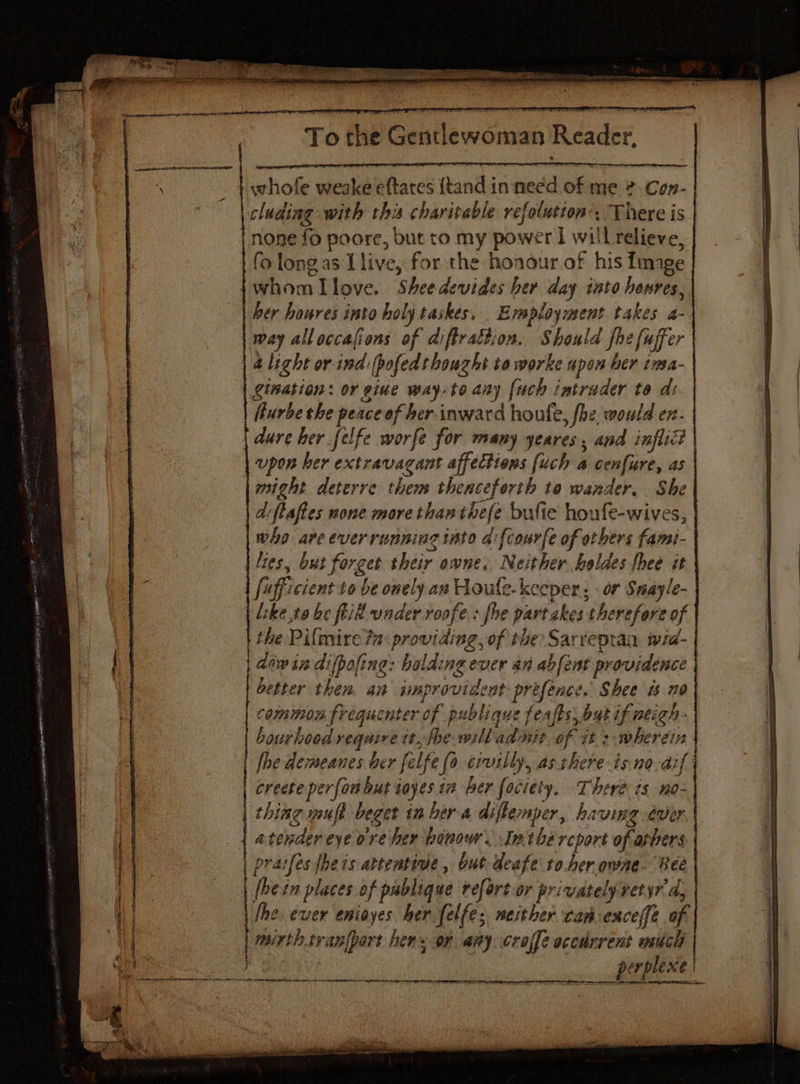 To the Gentlewoman Reader,
whoſe weake eſtates ſtand in need of me? Con-
cluding with this charitable reſolution; There is
none ſo poore, but to my power I will relieve,
ſo long as I live, for the honour of his Image
whom I love. Shee devides her day into houres,
her houres into holy taskes. Employment takes a-
way all occaſions of diſtraction. Should ſhe ſuffer
a light or indiſpoſed thought to worke upon her ima-
gination: or give way to any ſuch intruder to di-
ſturbe the peace of her inward houſe, ſhe would en-
dure her ſelfe worſe for many yeares, and inflict
vpon her extravagant affections ſuch a cenſure, as
might deterre them thenceforth to wander. She
diſtaſtes none more than theſe buſie houſe-wives,
who are ever running into diſcourſe of others fami-
lies, but forget their owne. Neither holdes ſhee it
ſufficient to be onely an Houſe-keeper; or Snayle-
like to be ſtill vnder roofe: ſhe partakes therefore of
the Piſmire in providing, of the Sarreptan wid-
dow in diſpoſing: holding ever an abſent providence
better then an improvident preſence. Shee is no
common frequenter of publique feaſts, but if neigh-
bourhood require it, ſhe will admit of it: wherein
ſhe demeanes her ſelfe ſo civilly, as there is no diſ-
creete perſon but ioyes in her ſociety. There is no-
thing muſt beget in her a diſtemper, having ever
a tender eye o're her honour. In the report of others
praiſes ſhe is attentive, but deafe to her owne. Bee
ſhe in places of publique reſort or privately retyr'd,
ſhe ever enioyes her ſelfe; neither can exceſſe of
mirth tranſport her, or any croſſe occurrent much
perplexe